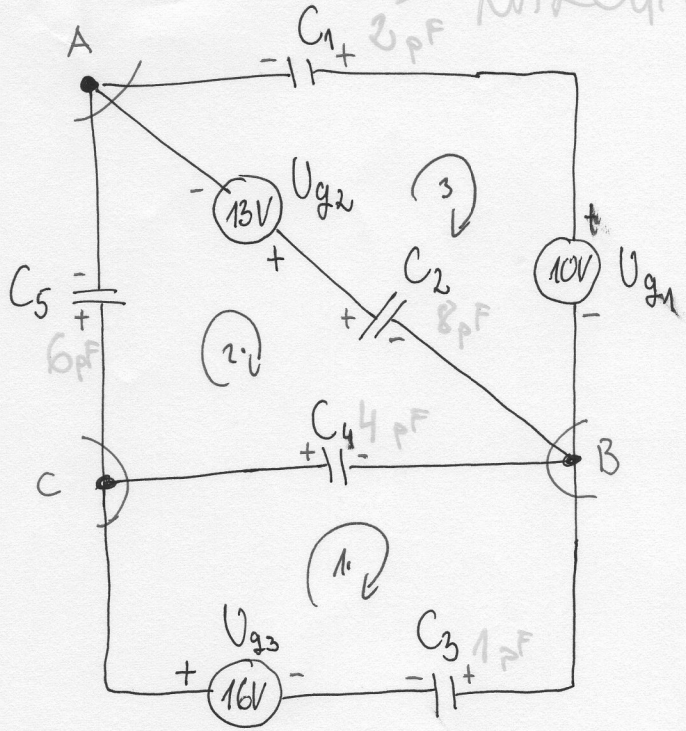 A
C1
2pF
- +
13V
Ug2
- +
3
10V
Ug1
+ -
C5
6pF
- +
C2
8pF
+ -
2.
C4
4pF
+ -
C
B
1.
Ug3
16V
+ -
C3
1pF
- +